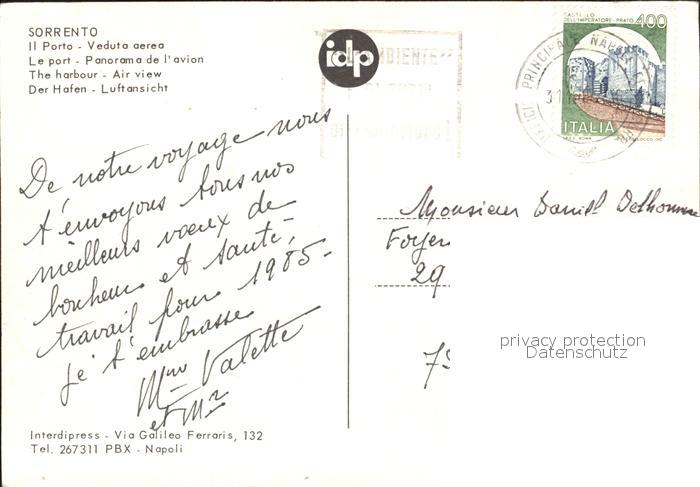 SORRENTO
Il Porto - Veduta aerea
Le port - Panorama de l'avion
The harbour - Air view
Der Hafen - Luftansicht
idp
AMBIENTE
CASTELLO
DELL'IMPERATORE - PRATO 400
PRINCIPALE NAPOLI
31
ITALIA
De notre voyage nous
t'envoyons tous nos
meilleurs vœux de
bonheur et santé,
travail pour 1985.
je t'embrasse
Mme Valette
et Mr
Monsieur Daniel Delhomme
Foyer
29
75
privacy protection
Datenschutz
Interdipress - Via Galileo Ferraris, 132
Tel. 267311 PBX - Napoli